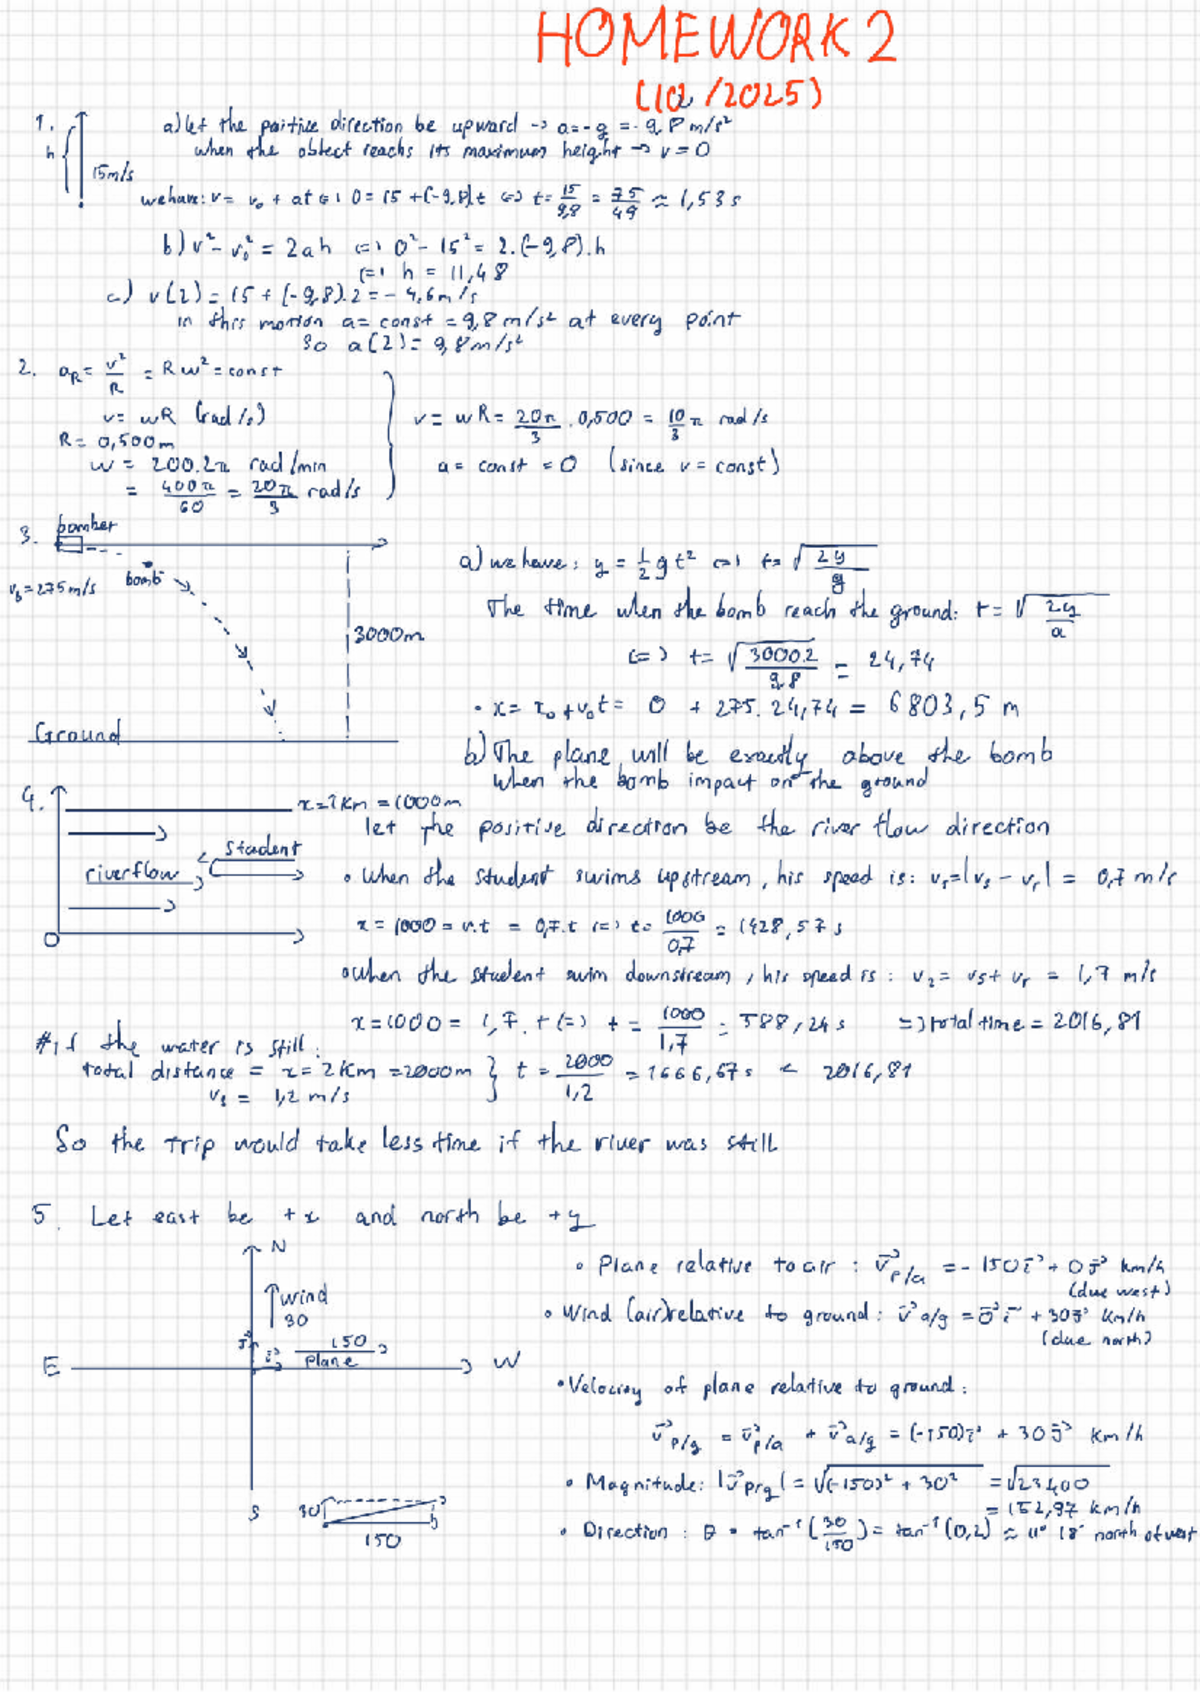 HOMEWORK 2
(10/2025)
1.
h
15m/s
a) let the paitive direction be upward -> a = -g = -9,8 m/s²
when the obtect reachs its maximum height -> v = 0
we have: v = v₀ + at <=> 0 = 15 + (-9,8).t <=> t = 15/9,8 = 75/49 ≈ 1,53 s
b) v² - v₀² = 2ah <=> 0² - 15² = 2.(-9,8).h
<=> h = 11,48
c) v(2) = 15 + (-9,8).2 = -4,6 m/s
in this motion a = const = 9,8 m/s² at every point
So a(2) = 9,8 m/s²
2. aR = v²/R = Rw² = const
v = wR (rad/s)
R = 0,500m
w = 200.2π rad/min
= 400π/60 = 20π/3 rad/s
v = wR = 20π/3 . 0,500 = 10/3 π rad/s
a = const = 0 (since v = const)
3. bomber
v₆ = 275 m/s
bomb
3000m
Ground
a) we have: y = 1/2 gt² <=> t = √(2y/g)
The time when the bomb reach the ground: t = √(2y/a)
<=> t = √(3000.2/9,8) = 24,74
• x = x₀ + v₀t = 0 + 275. 24,74 = 6803,5 m
b) The plane will be exactly above the bomb
when the bomb impact on the ground
4.
x = 1 Km = 1000m
riverflow
Student
O
let the positive direction be the river flow direction
• When the student swims upstream, his speed is: v₁ = |vs - vr| = 0,7 m/s
x = 1000 = v.t = 0,7.t <=> t = 1000/0,7 = 1428,57 s
• when the student swim downstream, his speed is: v₂ = vs + vr = 1,7 m/s
x = 1000 = 1,7.t <=> t = 1000/1,7 = 588,24 s => total time = 2016,81
# if the water is still:
total distance = x = 2 Km = 2000m } t = 2000/1,2 = 1666,67 s < 2016,81
vs = 1,2 m/s
So the trip would take less time if the river was still
5. Let east be +x and north be +y
N
wind
30
j⃗
i⃗
150
plane
E
W
S
30
150
• Plane relative to air: v⃗p/a = -150i⃗ + 0j⃗ km/h
(due west)
• Wind (air) relative to ground: v⃗a/g = 0i⃗ + 30j⃗ km/h
(due north)
• Velocity of plane relative to ground:
v⃗p/g = v⃗p/a + v⃗a/g = (-150)i⃗ + 30j⃗ km/h
• Magnitude: |v⃗p/g| = √((-150)² + 30²) = √23400
= 152,97 km/h
• Direction: θ = tan⁻¹(30/150) = tan⁻¹(0,2) ≈ 11° 18' north of west